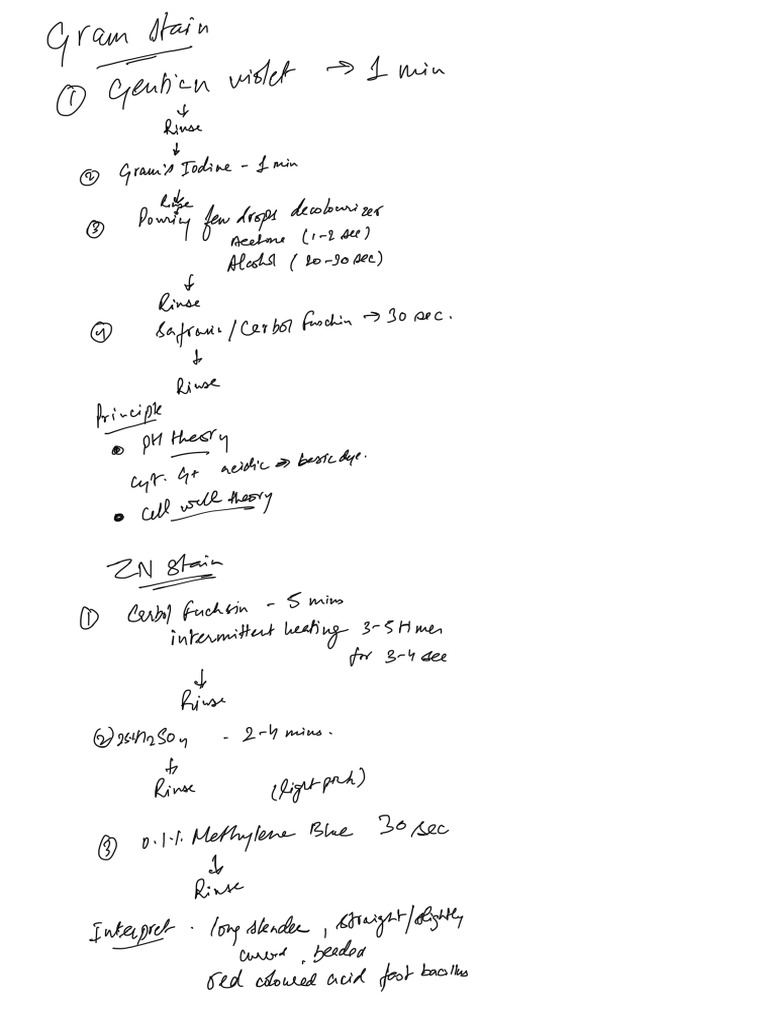 Gram Stain
① Gentian violet → 1 min
↓
Rinse
↓
② Gram's Iodine - 1 min
Rinse
③ Pouring few drops decolourizer
Acetone (1-2 sec)
Alcohol (20-30 sec)
↓
Rinse
④ Safranin/Carbol Fuschin → 30 sec.
↓
Rinse
Principle
• pH theory
Cyt. G+ acidic → basic dye.
• Cell wall theory
ZN Stain
① Carbol Fuchsin - 5 mins
intermittent heating 3-5 times
for 3-4 sec
↓
Rinse
② H2SO4 - 2-4 mins.
↓
Rinse (light pink)
③ 0.1% Methylene Blue 30 sec
↓
Rinse
Interpret. long slender, straight/slightly
curved, beaded
red coloured acid fast bacillus